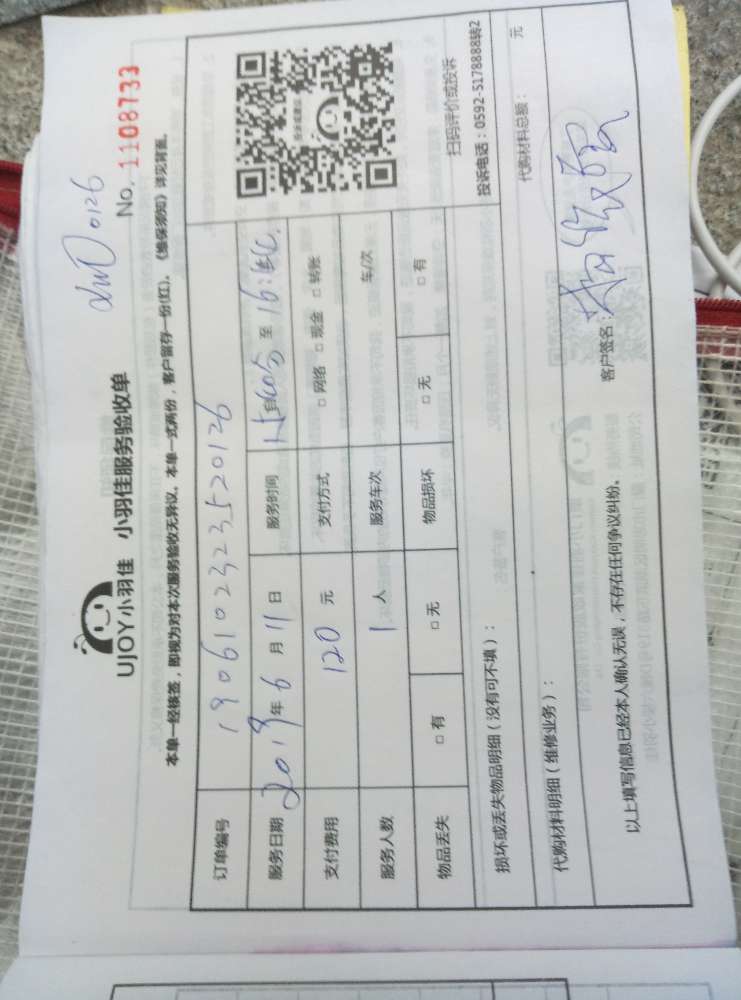 UJOY小羽佳 小羽佳服务验收单
0126
No. 1108733
本单一经核签，即视为对本次服务验收无异议。本单一式两份，客户留存一份(红)。《维保须知》详见背面。
订单编号 1906102323520126
服务日期 2019年6月11日 服务时间 自 至 16:
支付费用 120 元 支付方式 □网络 □现金 □转账
服务人数 1人 服务车次 车/次
物品丢失 □有 □无 物品损坏 □无 □有
扫码评价或投诉
投诉电话：0592-5178888转2
损坏或丢失物品明细（没有可不填）：
代购材料明细（维修业务）： 代购材料总额： 元
以上填写信息已经本人确认无误，不存在任何争议纠纷。 客户签名：